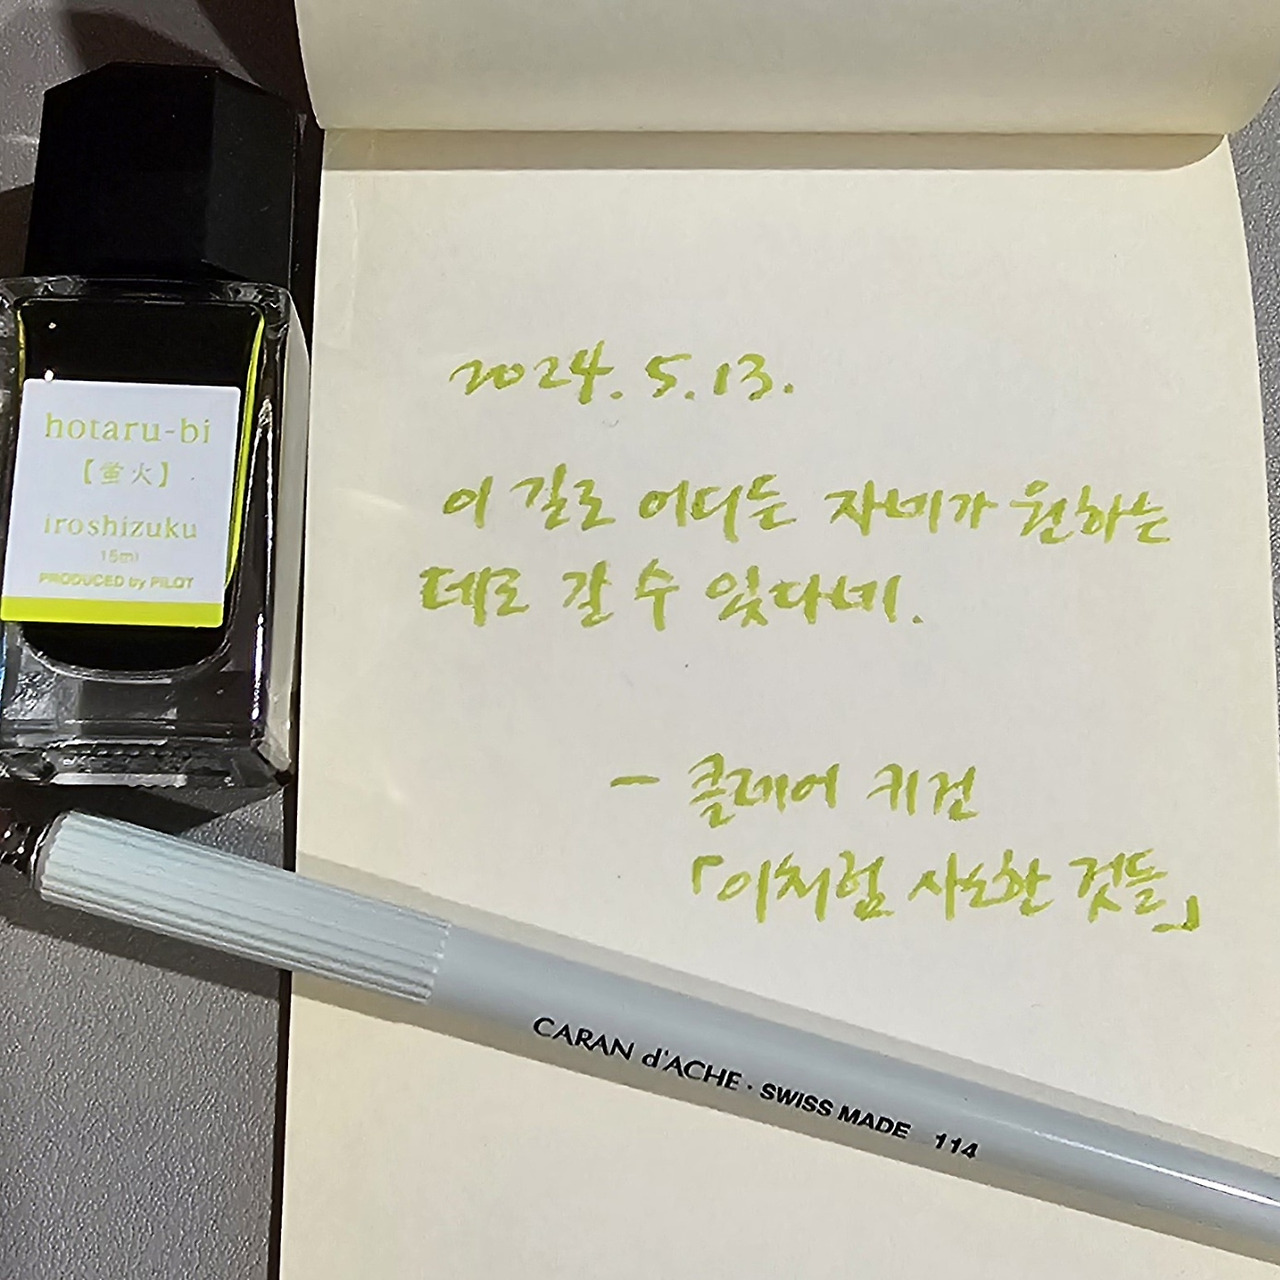 hotaru-bi
【蛍火】
iroshizuku
15ml
PRODUCED by PILOT
2024. 5. 13.
이 길로 어디든 자네가 원하는
데로 갈 수 있다네.
- 클레어 키건
「이처럼 사소한 것들」
CARAN d'ACHE · SWISS MADE 114